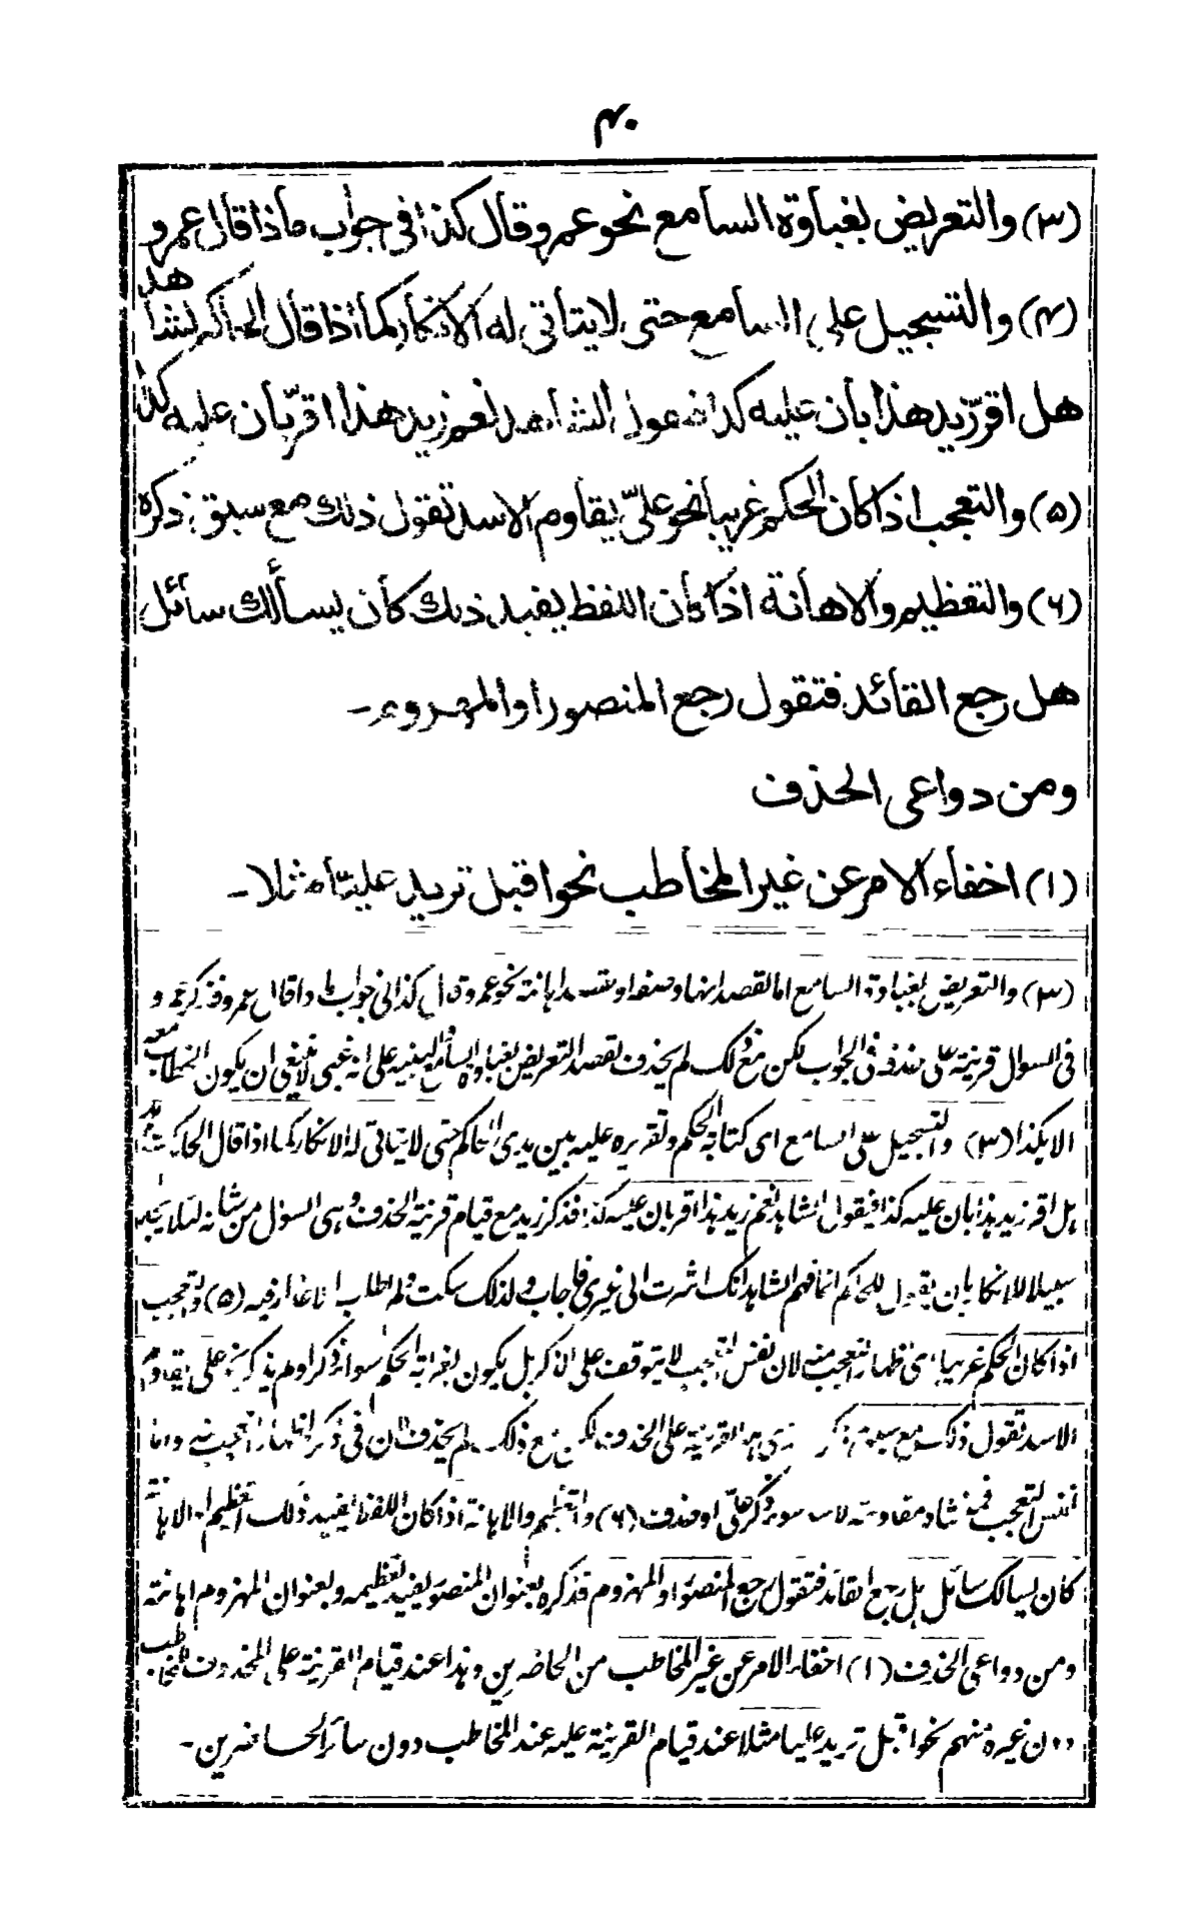 ۴۰
(۳) والتعريض بغباوة السامع نحو عمرو قال كذا فى جواب ماذا قال عمرو
(۴) والتسجيل على السامع حتى لا يتأتى له الانكار كما اذا قال الحاكم لشاهد
هل اقرّ زيد هذا بان عليه كذا فيقول الشاهد نعم زيد هذا اقرّ بان عليه كذا
(۵) والتعجب اذا كان الحكم غريبا نحو علىّ يقاوم الاسد تقول ذلك مع سبق ذكره
(۶) والتعظيم والاهانة اذا كان اللفظ يفيد ذلك كأن يسألك سائل
هل رجع القائد فتقول رجع المنصور او المهزوم ـ
ومن دواعى الحذف
(۱) اخفاء الامر عن غير المخاطب نحو اقبل تريد عليّا مثلا ـ
(۳) والتعريض بغباوة السامع اما لقصد ايهاو صفه او بقصد اهانة نحو عمرو قال كذا فى جواب ماذا قال عمرو فذكر عمرو
فى السوال قرينة على حذفه فى الجواب لكن مع ذلك لم يحذف لقصد التعريض بغباوة السامع والتنبيه على انه غبى لا ينبغى ان يكون الخطاب معه
الا هكذا (۳) والتسجيل على السامع اى كتابة الحكم وتقريره عليه بين يدى الحاكم حتى لا يتاتى له الانكار كما اذا قال الحاكم لشاهد
هل اقر زيد هذا بان عليه كذا فيقول الشاهد نعم زيد هذا اقر بان عليه كذا فذكر زيد مع قيام قرينة الحذف وهى السؤل من شانه لئلا يجد
سبيلا للانكار بان يقول للحاكم انما فهم الشاهد انك اشرت الى غيرى فاجاب ولذلك سكت ولم اطلب الاعذار فيه (۵) والتعجب
اذا كان الحكم غريبا اى اظهار التعجب منه لان نفس التعجب لا يتوقف على الذكر بل يكون لغرابة الحكم سواء ذكر او لم يذكر نحو على يقاوم
الاسد تقول ذلك مع سبق ذكر زيد هو القرينة على الحذف لكن مع ذلك لم يحذف لان فى ذكر اظهار التعجب منه واما
نفس التعجب فمنشاه مقاومته لاسد سواء ذكر على او حذف (۶) والتعظيم والاهانة اذا كان اللفظ يفيد ذلك التعظيم او الاهانة
كان يسالك سائل هل رجع القائد فتقول رجع المنصور او المهزوم فذكره بعنوان المنصور يفيد تعظيمه وبعنوان المهزوم اهانته
ومن دواعى الحذف (۱) اخفاء الامر عن غير المخاطب من الحاضرين وهذا عند قيام القرينة على المحذوف للمخاطب
دون غيره منهم نحو اقبل تريد عليا مثلا عند قيام القرينة عليه عند المخاطب دون سائر الحاضرين ـ